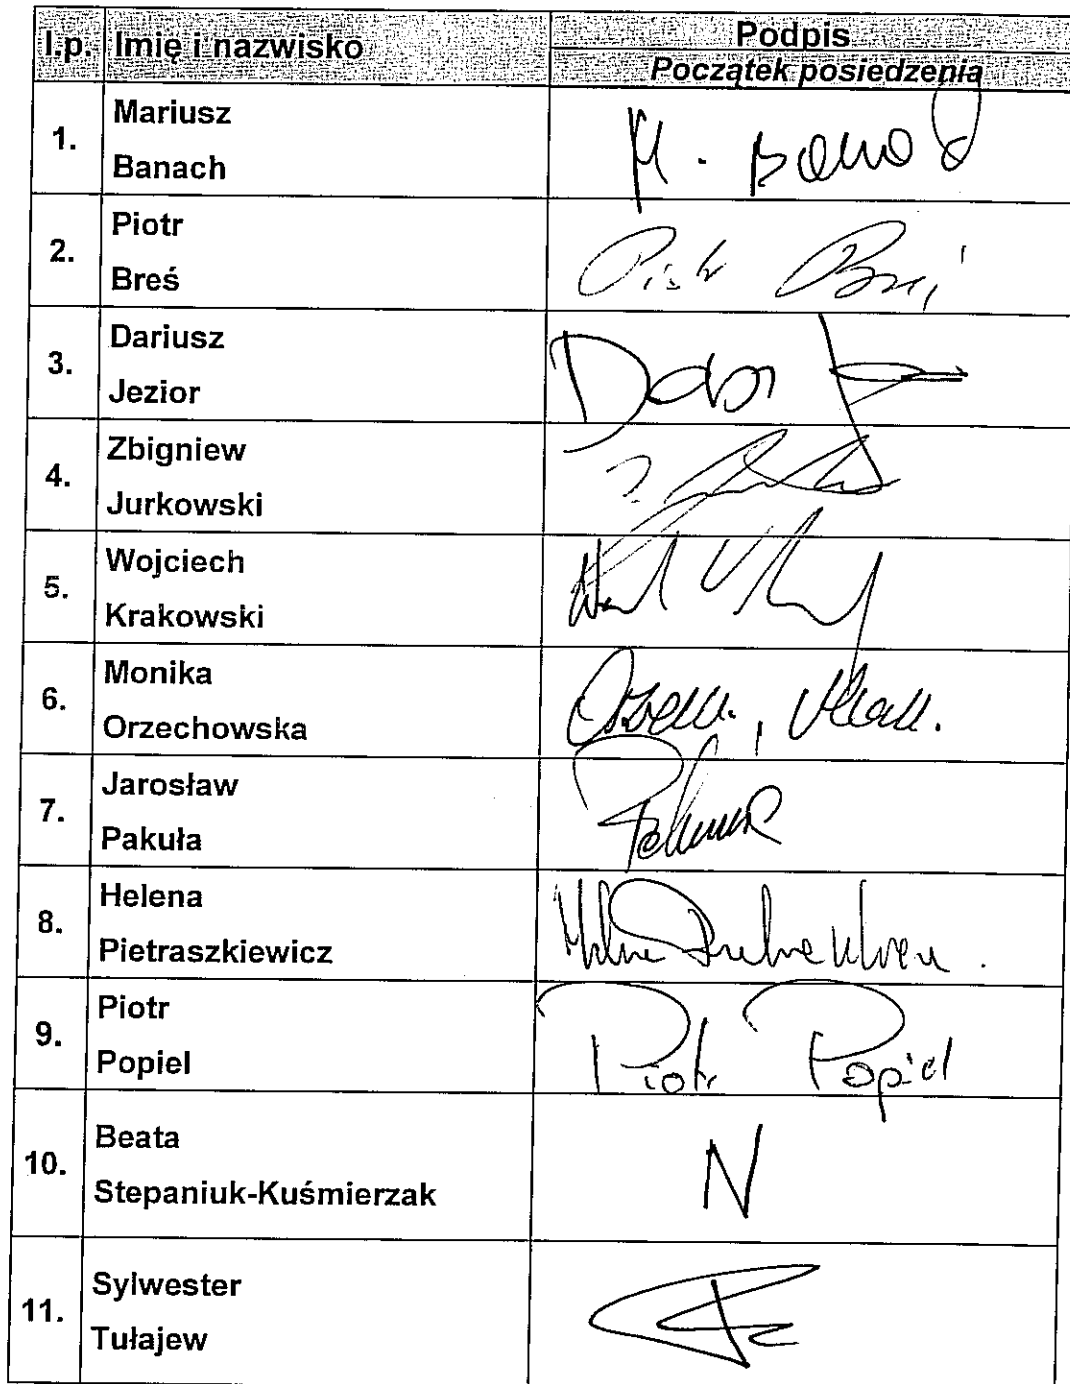 l.p. Imię i nazwisko Podpis
Początek posiedzenia
1. Mariusz
Banach
M. Banach
2. Piotr
Breś
Piotr Breś
3. Dariusz
Jezior
4. Zbigniew
Jurkowski
5. Wojciech
Krakowski
6. Monika
Orzechowska
7. Jarosław
Pakuła
8. Helena
Pietraszkiewicz
9. Piotr
Popiel
Piotr Popiel
10. Beata
Stepaniuk-Kuśmierzak
N
11. Sylwester
Tułajew